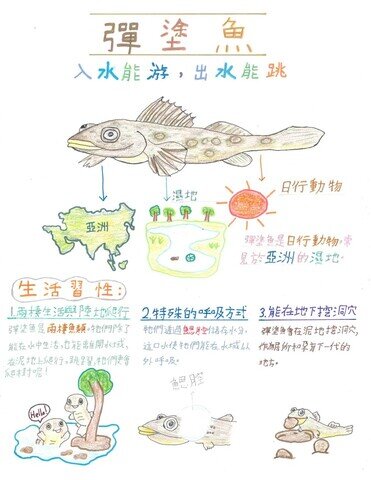 彈塗魚
入水能游，出水能跳
濕地
日行動物
亞洲
彈塗魚是日行動物,常
見於亞洲的濕地。
生活習性:
1.兩棲生活與陸地爬行
彈塗魚是兩棲魚類,牠們除了
能在水中生活,也能離開水域,
在泥地上爬行、跳躍,牠們更會
爬樹呢!
2.特殊的呼吸方式
牠們透過鰓腔儲存水分,
這口水使牠們能在水域以
外呼吸。
3.能在地下挖洞穴
彈塗魚會在泥地挖洞穴,
作為居所和孕育下一代的
地方。
Hello!
鰓腔